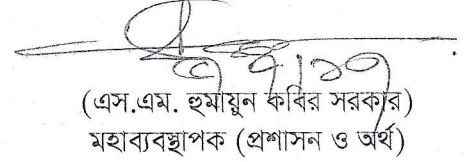 (এস.এম. হুমায়ুন কবির সরকার)
মহাব্যবস্থাপক (প্রশাসন ও অর্থ)